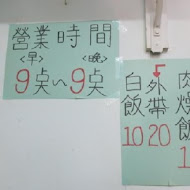 營業時間
<早> <晚>
9点~9点
白飯 10
外帶 20
肉燥飯 1